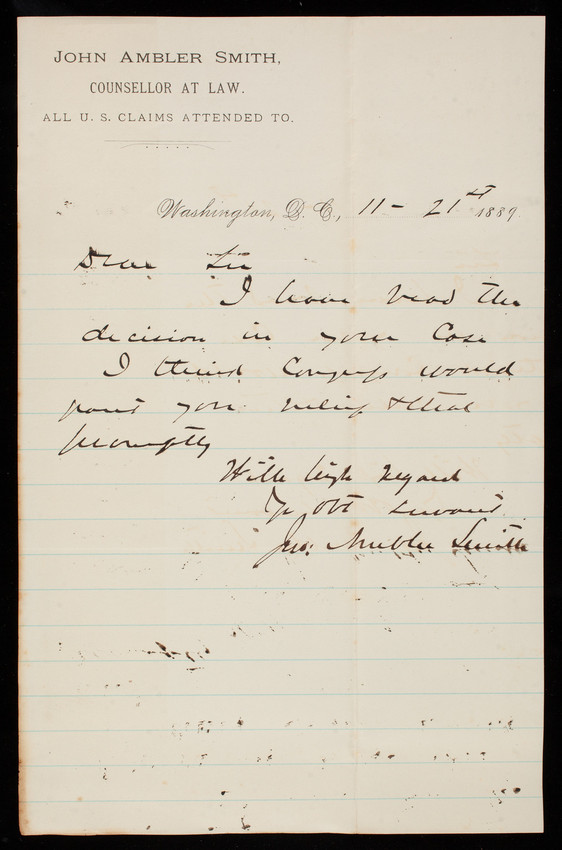 JOHN AMBLER SMITH,
COUNSELLOR AT LAW.
ALL U. S. CLAIMS ATTENDED TO.
Washington, D. C., 11 - 21st 1889.
Dear Sir
I have read the
decision in your Case
I think Congress would
grant you relief & that
promptly
With high regard
Yr obt servant
Jno: Ambler Smith